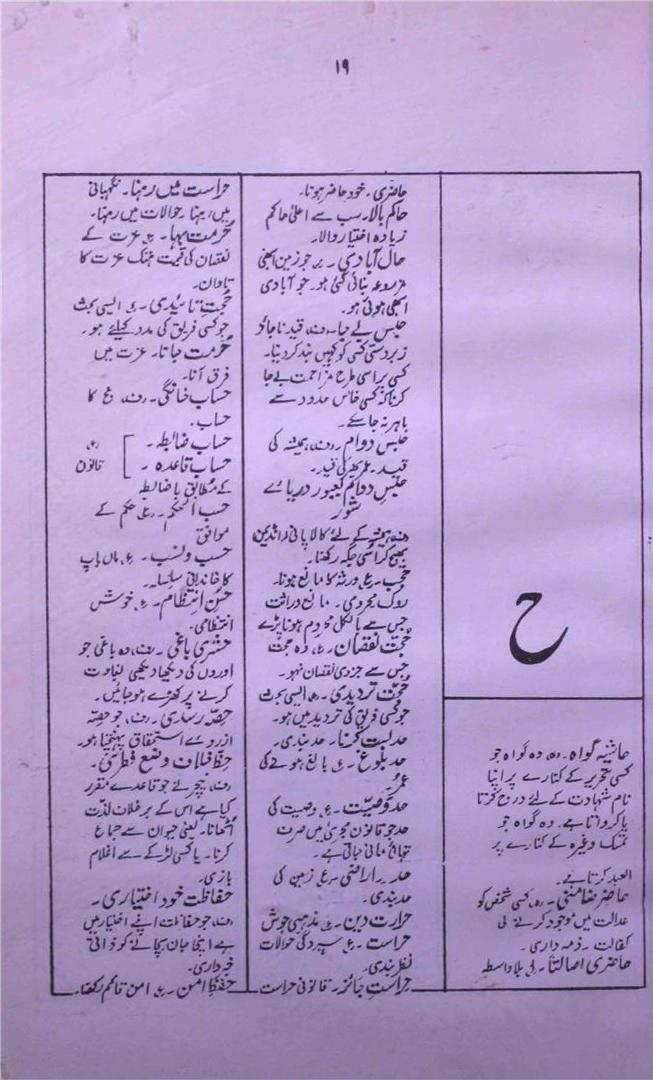 ۱۹
ح
حاشیہ گواہ۔ وہ گواہ جو
کسی تحریر کے کنارے پر اپنا
نام شہادت کے لئے درج کرتا
یا کرواتا ہے۔ وہ گواہ جو
تمسک وغیرہ کے کنارے پر
العبد کرتا ہے۔
حاضر ضامنی۔ کسی شخص کو
عدالت میں موجود کرنے کی
کفالت۔ ذمہ داری۔
حاضری اصالتاً۔ بلا واسطہ
حاضری۔ خود حاضر ہونا۔
حاکم بالا۔ سب سے اعلیٰ حاکم
زیادہ اختیار والا۔
حال آبادی۔ جو زمین ابھی
مزروعہ بنائی گئی ہو۔ جو آبادی
ابھی ہوئی ہو۔
حبس بے جا۔ قید ناجائز
زبردستی کسی کو کہیں بند کر دینا۔
کسی پر اسی طرح مزاحمت بے جا
کرنا کہ کسی خاص حدود سے
باہر نہ جا سکے۔
حبس دوام۔ ہمیشہ کی
قید۔ عمر بھر کی قید۔
حبس دوام بعبور دریائے
شور
ہمیشہ کے لئے کالا پانی
بھیج کر اسی جگہ رکھنا۔
حجب۔ ورثہ کا مانع ہونا۔
روک محرومی۔ مانع وراثت
جس سے بالکل محروم ہونا پڑے
حجب نقصان۔ وہ حجب
جس سے جزوی نقصان نہو۔
حجت تردیدی۔ ایسی بحث
جو کسی فریق کی تردید میں ہو۔
حد بست کرنا۔ حد بندی۔
حد بلوغ۔ بالغ ہونے کی
عمر
حد وصیت۔ وصیت کی
حد جو قانون محمدی میں صرف
تہائی مانی جاتی ہے۔
حد اراضی۔ زمین کی
حد بندی۔
حرارت دین۔ مذہبی جوش
حراست۔ سپردگی حوالات
نظر بندی۔
حراست جائز۔ قانونی حراست
حراست میں رہنا۔ نگہبانی
میں رہنا۔ حوالات میں رہنا۔
حرمت بہا۔ عزت کے
نقصان کی قیمت ہتک عزت کا
تاوان۔
حجت تائیدی۔ ایسی بحث
جو کسی فریق کی مدد کیلئے ہو۔
حرمت جانا۔ عزت میں
فرق آنا۔
حساب خانگی۔ نج کا
حساب۔
حساب ضابطہ۔
حساب قاعدہ۔ قانون
کے مطابق با ضابطہ
حسب الحکم۔ حکم کے
موافق
حسب و نسب۔ ماں باپ
کا خاندانی سلسلہ۔
حسن انتظام۔ خوش
انتظامی۔
حشری باغی۔ وہ باغی جو
اوروں کی دیکھا دیکھی بغاوت
کرنے پر کھڑے ہو جائیں۔
حصہ رسدی۔ جو حصہ
از روئے استحقاق پہنچتا ہو۔
حظ خلاف وضع فطری۔
نیچر نے جو قاعدے مقرر
کیا ہے اس کے برخلاف لذت
اٹھانا۔ یعنی حیوان سے جماع
کرنا۔ یا کسی لڑکے سے اغلام
بازی۔
حفاظت خود اختیاری۔
جو حفاظت اپنے اختیار میں
ہے اپنی جان بچانے کو ذاتی
خبر داری۔
حفظ امن۔ امن قائم رکھنا۔